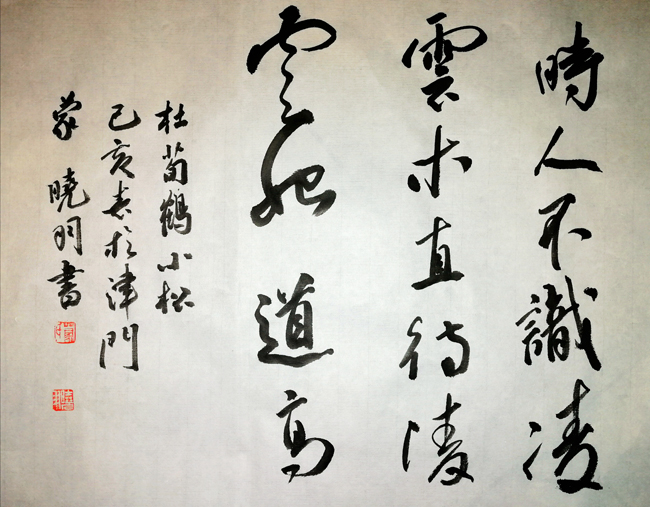 時人不識凌
雲木直待凌
雲始道高
杜荀鶴小松
己亥春於津門
蒙曉明書